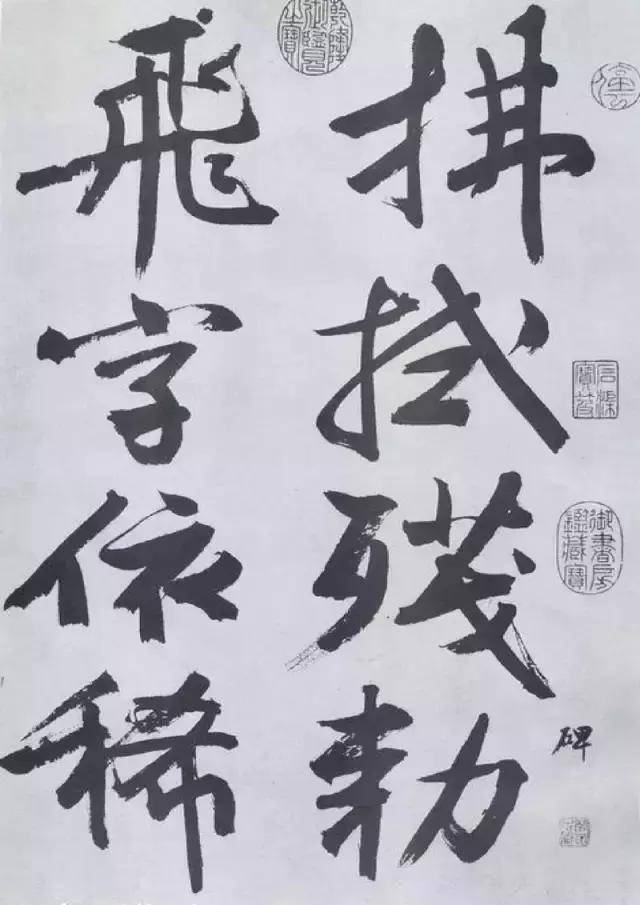 拂拭殘勅
碑
飛字依稀
乾隆御覽之寶
停雲
石渠寶笈
御書房鑑藏寶